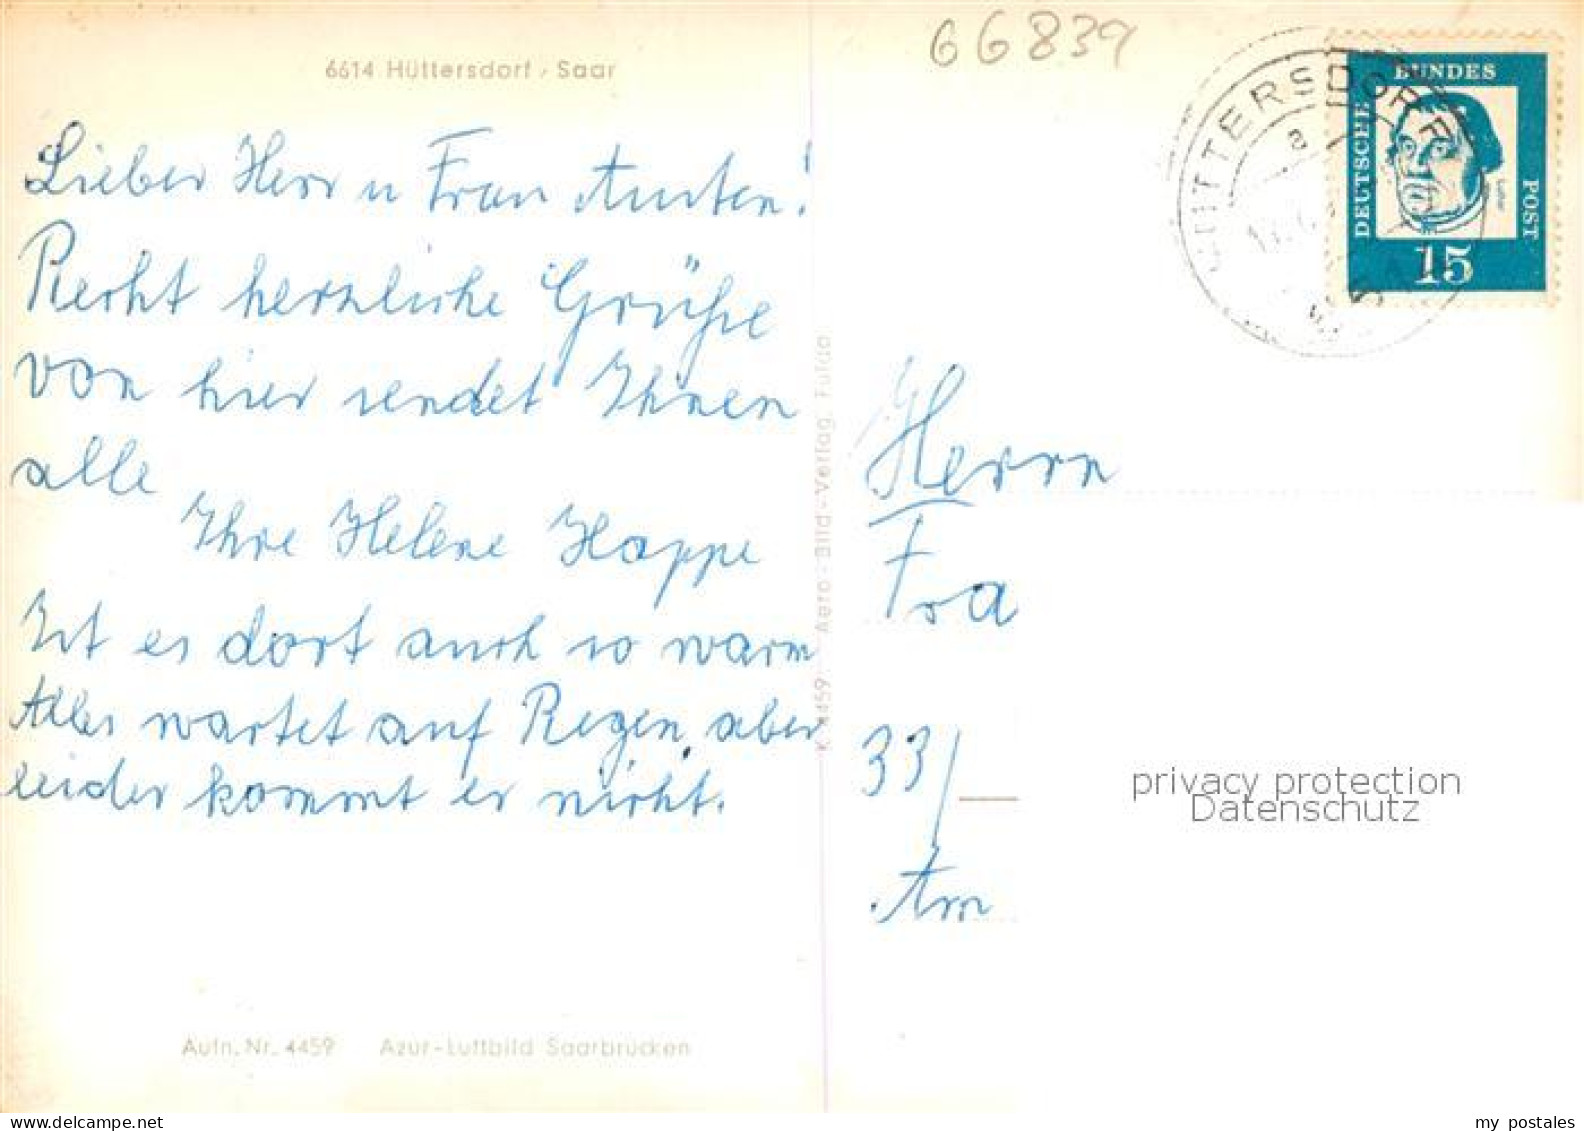 66839
6614 Hüttersdorf, Saar
Lieber Herr u Frau
Recht herzliche Grüße
von hier sendet Ihnen
alle
Ihre Helene Happe
Ist es dort auch so warm
Alles wartet auf Regen, aber
leider kommt er nicht.
Aufn. Nr. 4459 Azur-Luftbild Saarbrücken
K 4459 Aero-Bild-Verlag, Fulda
HÜTTERSDORF
a
DEUTSCHE BUNDES POST
15
Herrn
Fra
33/
Am
privacy protection
Datenschutz
www.delcampe.net
my postales